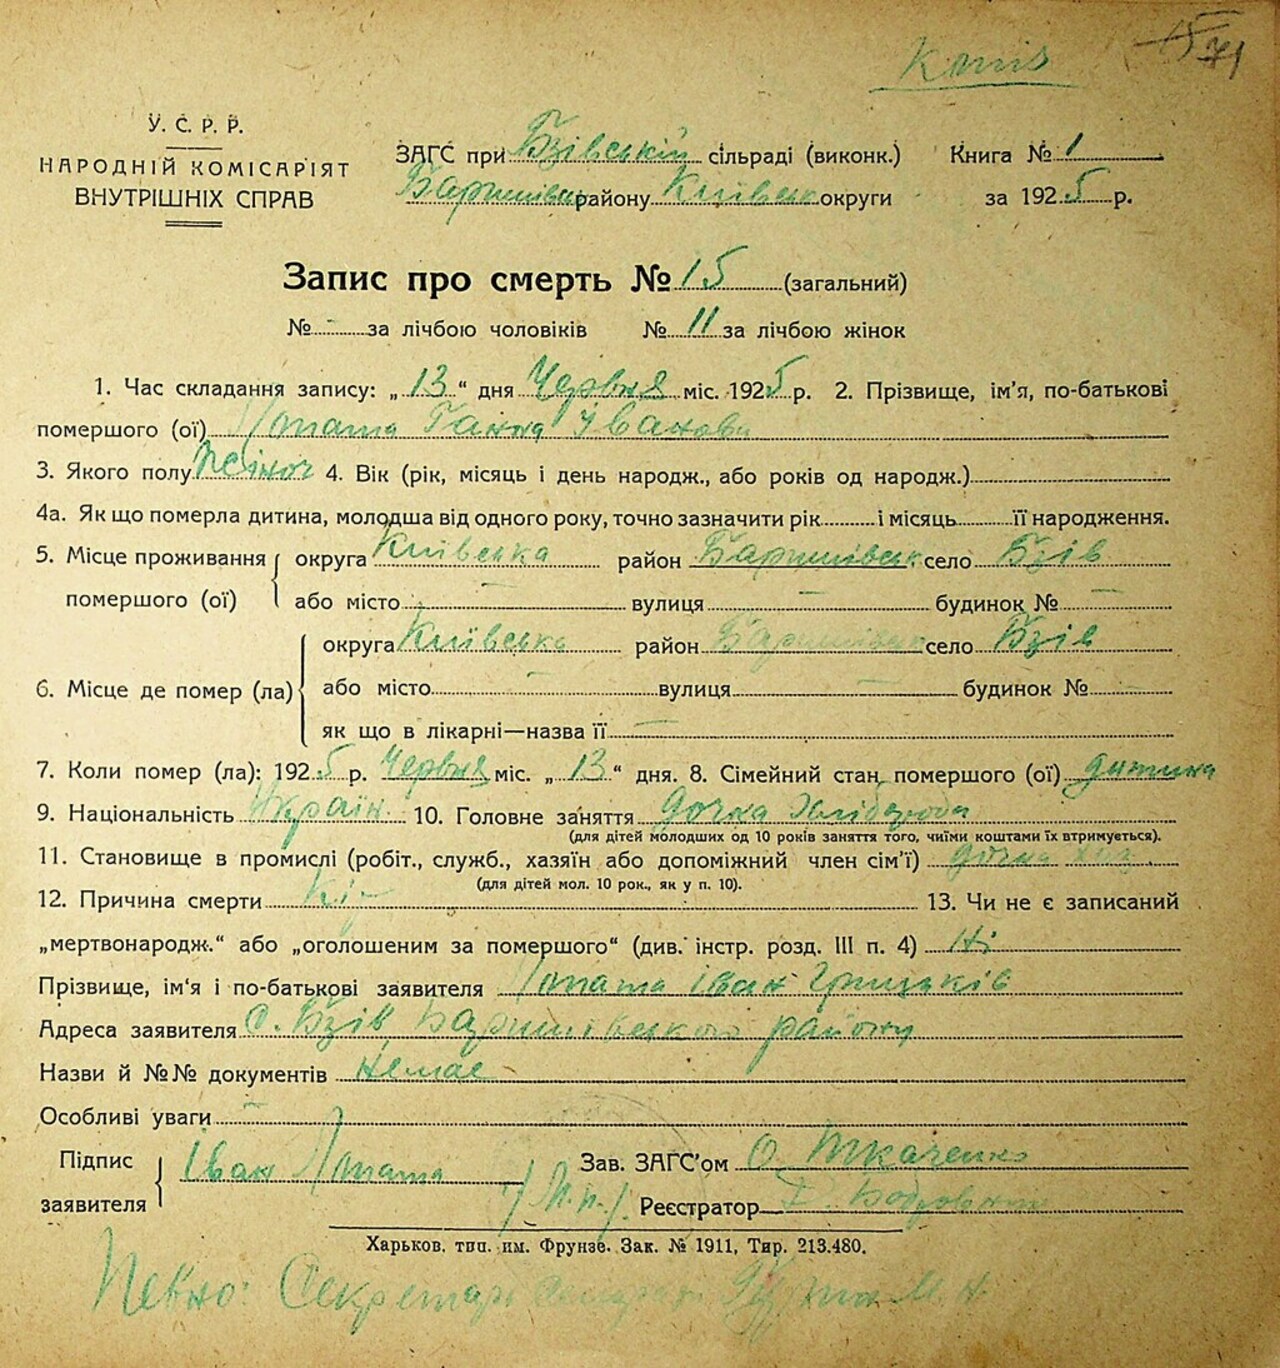 Копія 71
У. С. Р. Р.
НАРОДНІЙ КОМІСАРІЯТ
ВНУТРІШНІХ СПРАВ
ЗАГС при Бзівській сільраді (виконк.) Книга № 1
Баришівськ району Київськ округи за 1925 р.
Запис про смерть № 15 (загальний)
№ - за лічбою чоловіків № 11 за лічбою жінок
1. Час складання запису: „13“ дня Червня міс. 1925 р. 2. Прізвище, ім'я, по-батькові
помершого (ої) Лопата Ганна Іванови
3. Якого полу жіноч 4. Вік (рік, місяць і день народж., або років од народж.)
4а. Як що померла дитина, молодша від одного року, точно зазначити рік і місяць її народження.
5. Місце проживання округа Київська район Баришівськ село Бзів
помершого (ої) або місто — вулиця — будинок № —
округа Київська район Баришівськ село Бзів
6. Місце де помер (ла) або місто — вулиця — будинок № —
як що в лікарні—назва її —
7. Коли помер (ла): 1925 р. Червня міс. „13“ дня. 8. Сімейний стан помершого (ої) дитина
9. Національність Україн. 10. Головне заняття дочка Хлібороба
(для дітей молодших од 10 років заняття того, чиїми коштами їх втримується).
11. Становище в промислі (робіт., служб., хазяїн або допоміжний член сім'ї) дочка хаз.
(для дітей мол. 10 рок., як у п. 10).
12. Причина смерти 13. Чи не є записаний
„мертвонародж.“ або „оголошеним за помершого“ (див. інстр. розд. III п. 4) Ні
Прізвище, ім'я і по-батькові заявителя Лопата Іван Грицьків
Адреса заявителя С. Бзів Баришівського району
Назви й №№ документів Немає
Особливі уваги —
Підпис Іван Лопата Зав. ЗАГС'ом О. Ткаченко
заявителя /М.п./ Реєстратор
Харьков. тип. им. Фрунзе. Зак. № 1911, Тир. 213.480.
Певно: Секретар Сільради